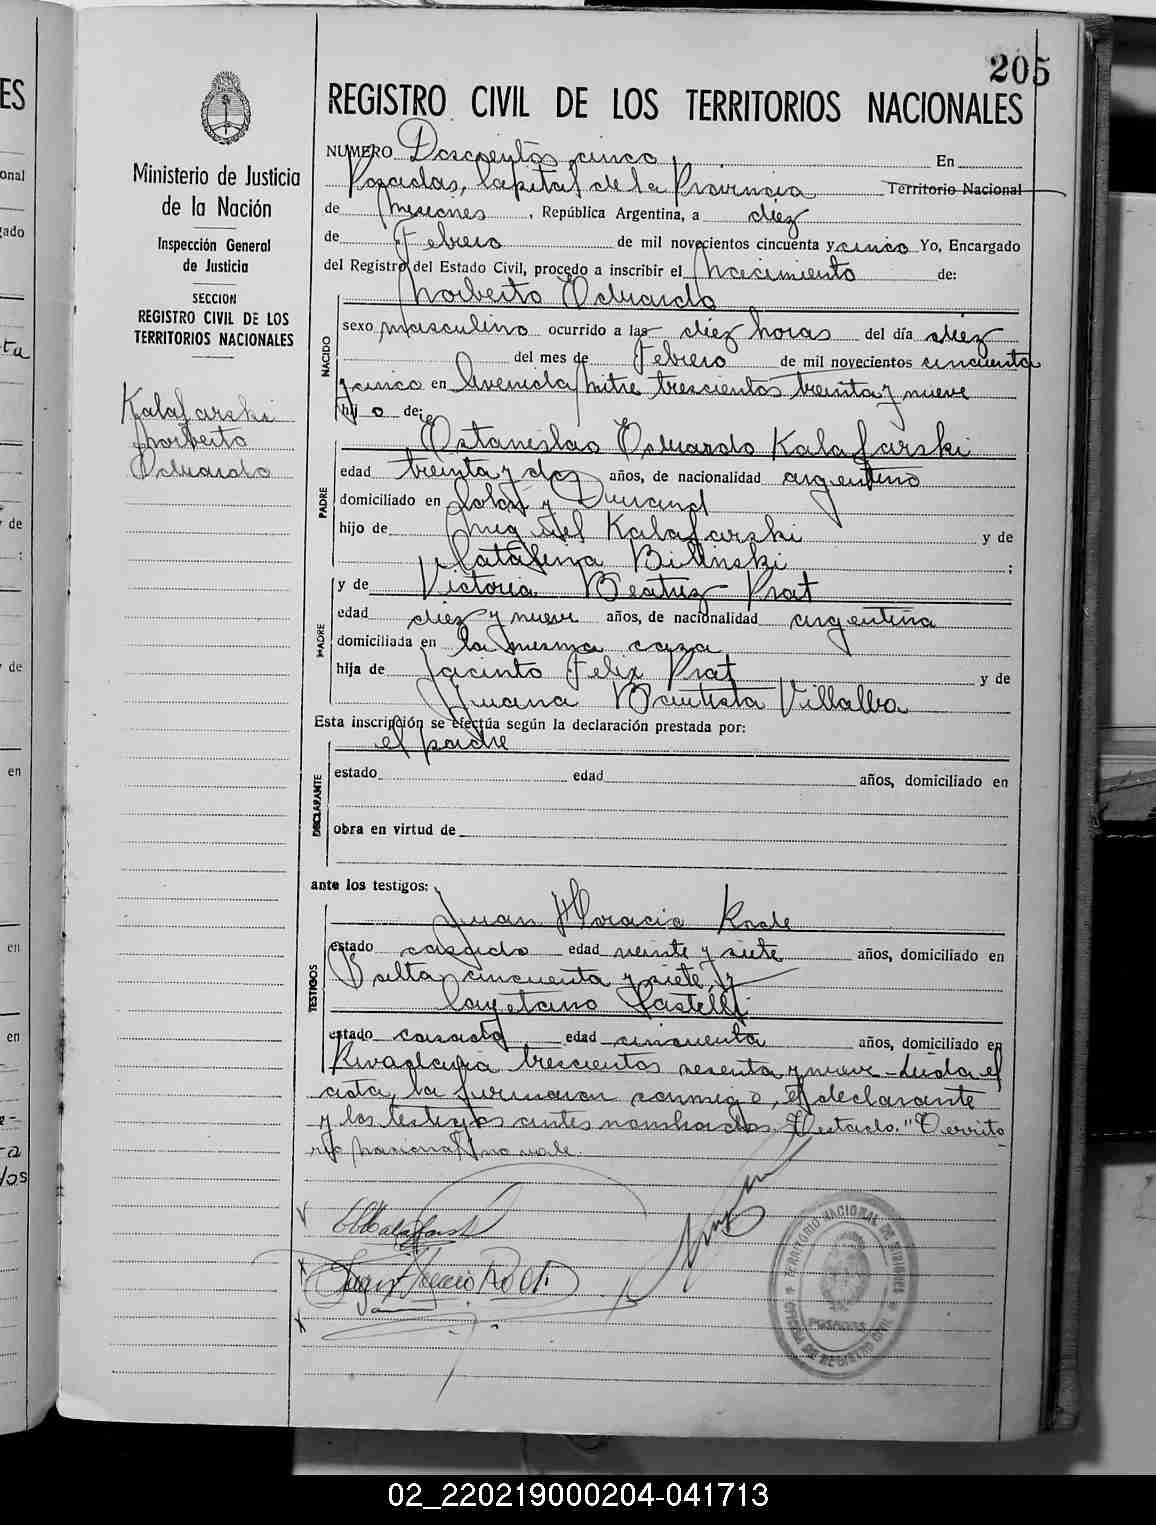 205
REGISTRO CIVIL DE LOS TERRITORIOS NACIONALES
Ministerio de Justicia
de la Nación
Inspección General
de Justicia
SECCION
REGISTRO CIVIL DE LOS
TERRITORIOS NACIONALES
Kalafarski
Norberto
Eduardo
NUMERO Doscientos cinco En
Posadas, Capital de la Provincia Territorio Nacional
de Misiones, República Argentina, a diez
de Febrero de mil novecientos cincuenta y cinco Yo, Encargado
del Registro del Estado Civil, procedo a inscribir el Nacimiento de:
Norberto Eduardo
NACIDO
sexo masculino ocurrido a las diez horas del día diez
del mes de Febrero de mil novecientos cincuenta
y cinco en Avenida Mitre trescientos treinta y nueve
hijo de:
PADRE
Estanislao Eduardo Kalafarski
edad treinta y dos años, de nacionalidad argentino
domiciliado en Colón y Durand
hijo de Miguel Kalafarski y de
Catalina Bilinski;
MADRE
y de Victoria Beatriz Prat
edad diez y nueve años, de nacionalidad argentina
domiciliada en la misma casa
hija de Jacinto Felix Prat y de
Juana Bautista Villalba
Esta inscripción se efectúa según la declaración prestada por:
el padre
DECLARANTE
estado edad años, domiciliado en
obra en virtud de
ante los testigos:
TESTIGOS
Juan Horacio
estado casado edad veinte y siete años, domiciliado en
Salta cincuenta y siete y
Cayetano Castelli
estado casado edad cincuenta años, domiciliado en
Rivadavia trescientos sesenta y nueve - Leída el
acta, la firmaron conmigo, el declarante
y los testigos antes nombrados. Testado: "Territo-
rio Nacional" no vale.
TERRITORIO NACIONAL DE MISIONES
POSADAS
OFICINA DE REGISTRO CIVIL
02_220219000204-041713